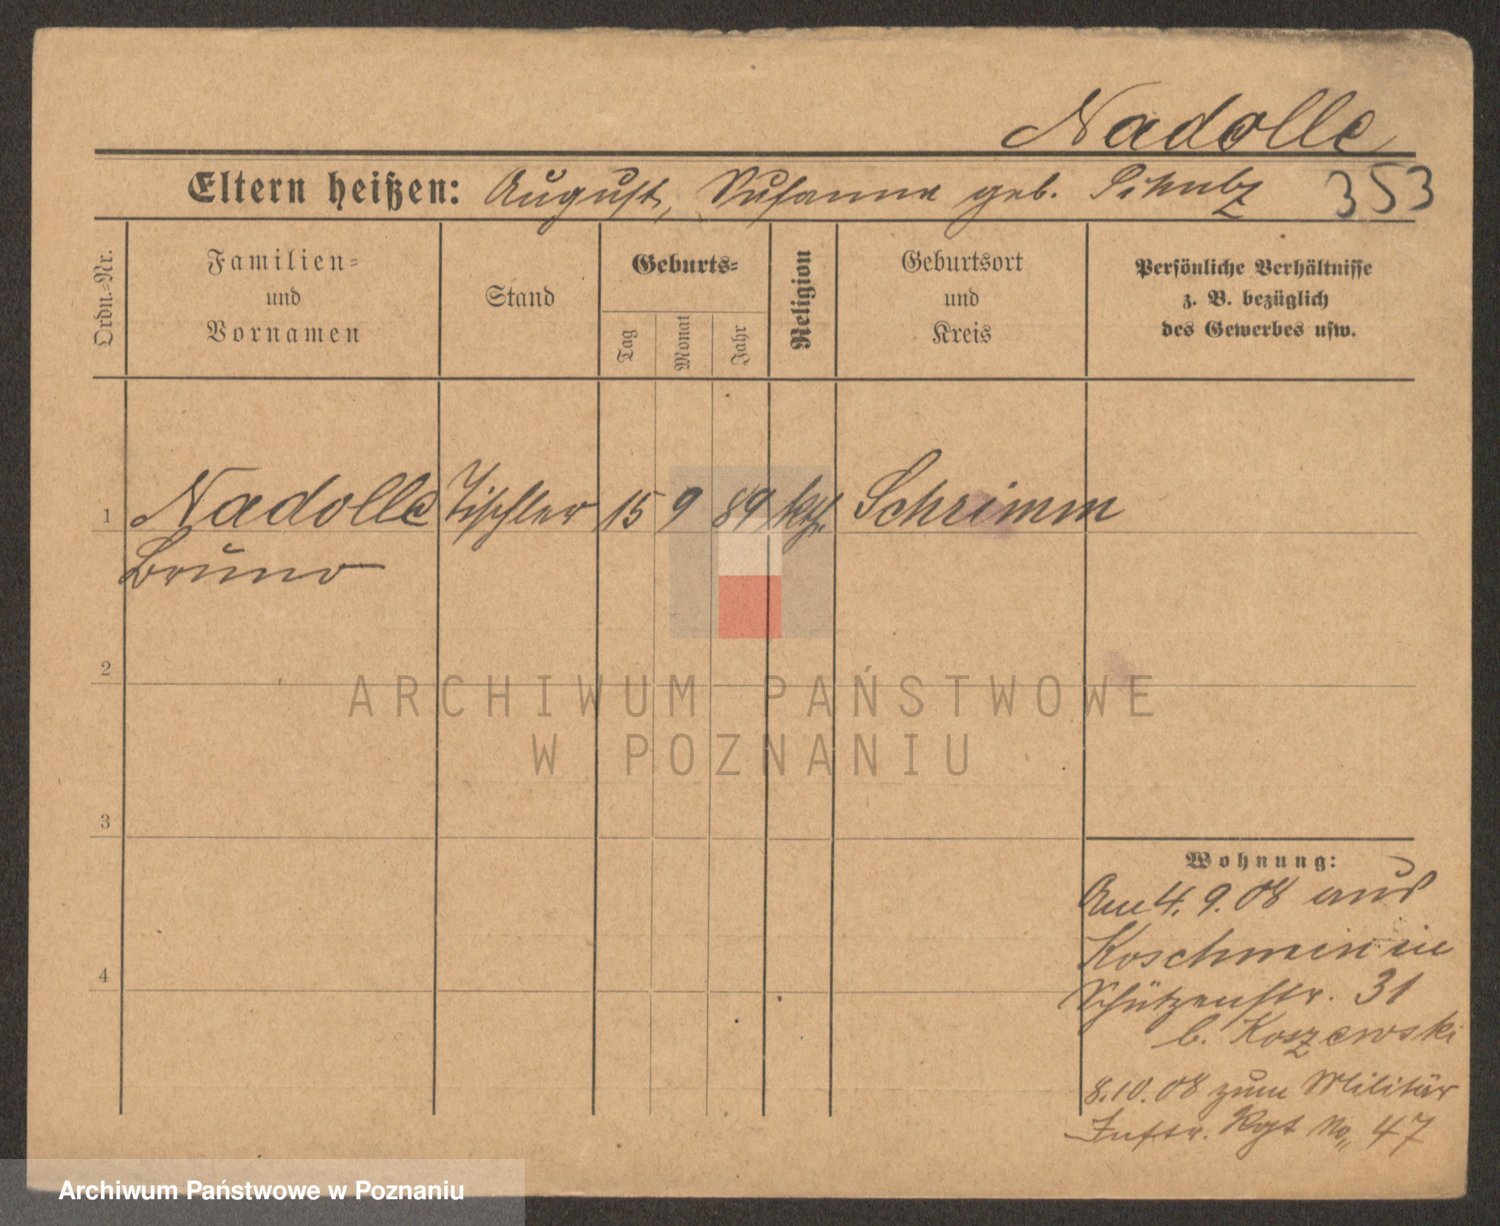 Nadolle
Eltern heißen: August, Susanna geb. 353
Ordn.-Nr.
Familien- und Vornamen
Stand
Geburts-
Tag
Monat
Jahr
Religion
Geburtsort und Kreis
Persönliche Verhältnisse z. B. bezüglich des Gewerbes usw.
1 Nadolle Tischler 15 9 89 kth Schrimm
Bruno
2
ARCHIWUM PAŃSTWOWE
W POZNANIU
3
Wohnung:
Am 4. 9. 08 aus
Koschmin in
4
Schützenstr. 31
b. Koszewski
8.10.08 zum Militär
Inftr. Rgt No. 47
Archiwum Państwowe w Poznaniu